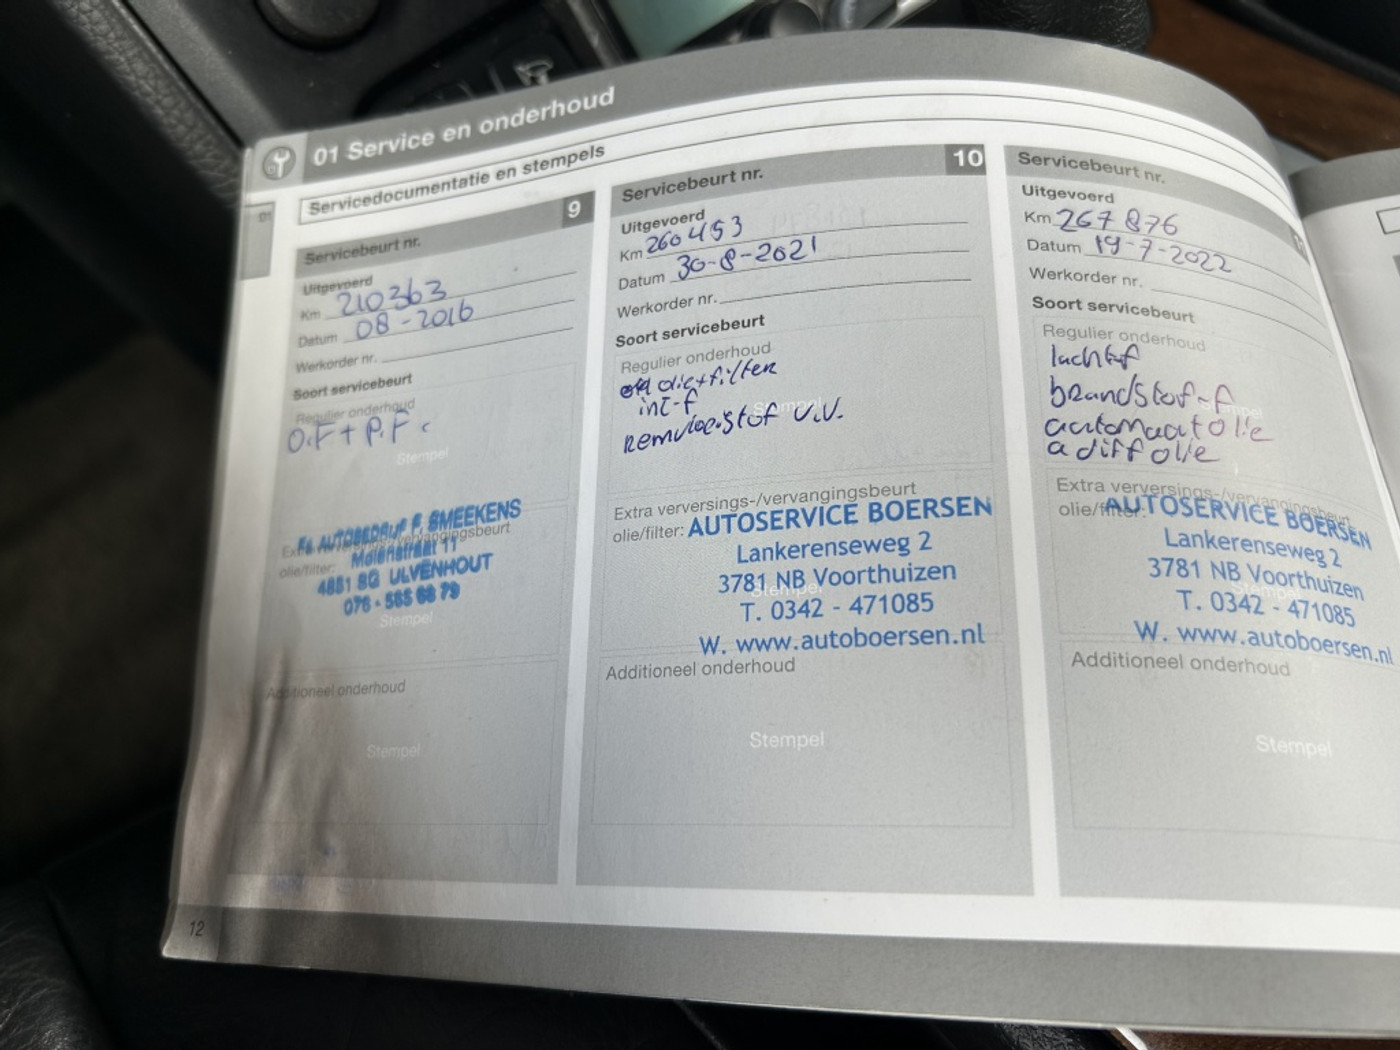 01 Service en onderhoud
Servicedocumentatie en stempels
01
Servicebeurt nr. 9
Uitgevoerd
Km 210363
Datum 08-2016
Werkorder nr.
Soort servicebeurt
Regulier onderhoud
O.F + P.F.
Stempel
Extra verversings-/vervangingsbeurt
olie/filter:
Fa. AUTOBEDRIJF F. SMEEKENS
Molenstraat 11
4851 SG ULVENHOUT
076 - 565 68 79
Stempel
Additioneel onderhoud
Stempel
Servicebeurt nr. 10
Uitgevoerd
Km 260453
Datum 30-8-2021
Werkorder nr.
Soort servicebeurt
Regulier onderhoud
olie+filter
int-f
Stempel
remvloeistof v.v.
Extra verversings-/vervangingsbeurt
olie/filter:
AUTOSERVICE BOERSEN
Lankerenseweg 2
3781 NB Voorthuizen
Stempel
T. 0342 - 471085
W. www.autoboersen.nl
Additioneel onderhoud
Stempel
Servicebeurt nr.
Uitgevoerd
Km 267876
Datum 19-7-2022
Werkorder nr.
Soort servicebeurt
Regulier onderhoud
luchtf
brandstof-f
Stempel
automaatolie
a diff olie
Extra verversings-/vervangingsbeurt
olie/filter:
AUTOSERVICE BOERSEN
Lankerenseweg 2
3781 NB Voorthuizen
Stempel
T. 0342 - 471085
W. www.autoboersen.nl
Additioneel onderhoud
Stempel
12